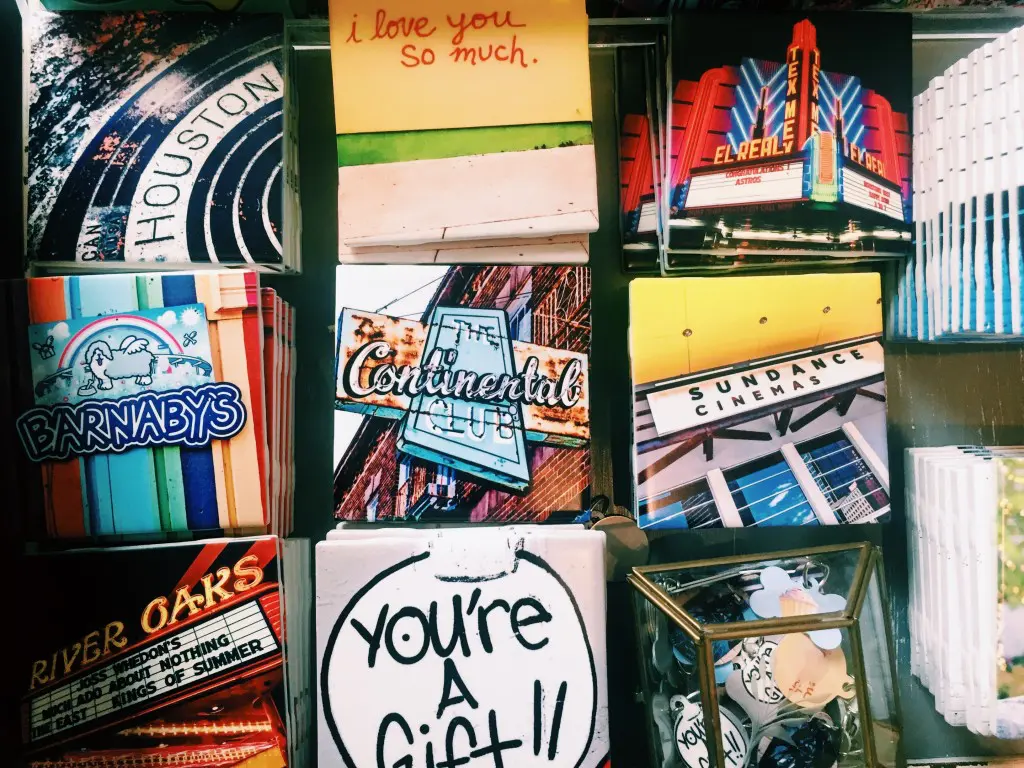 HOUSTON
CAN
i love you
so much.
TEX MEX
EL REAL
EL REAL
CONGRATULATIONS
ASTROS
BARNABY'S
THE
Continental
CLUB
SUNDANCE
CINEMAS
RIVER OAKS
JOSS WHEDON'S
MUCH ADO ABOUT NOTHING
THE EAST KINGS OF SUMMER
YOU'RE
A
Gift!!
YOU'RE